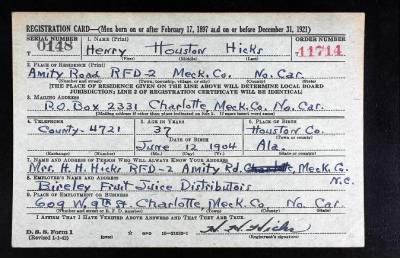 REGISTRATION CARD—(Men born on or after February 17, 1897 and on or before December 31, 1921)
SERIAL NUMBER 1. NAME (Print) ORDER NUMBER
T 0148 Henry Houston Hicks 11714
(First) (Middle) (Last)
2. PLACE OF RESIDENCE (Print)
Amity Road RFD-2 Meck. Co. No. Car.
(Number and street) (Town, township, village, or city) (County) (State)
[THE PLACE OF RESIDENCE GIVEN ON THE LINE ABOVE WILL DETERMINE LOCAL BOARD
JURISDICTION; LINE 2 OF REGISTRATION CERTIFICATE WILL BE IDENTICAL]
3. MAILING ADDRESS
P.O. Box 2331 Charlotte, Meck. Co. No. Car.
(Mailing address if other than place indicated on line 2. If same insert word same)
4. TELEPHONE 5. AGE IN YEARS 6. PLACE OF BIRTH
County-4721 37 Houston Co.
DATE OF BIRTH (Town or county)
June 12 1904 Ala.
(Exchange) (Number) (Mo.) (Day) (Yr.) (State or country)
7. NAME AND ADDRESS OF PERSON WHO WILL ALWAYS KNOW YOUR ADDRESS
Mrs. H. H. Hicks RFD-2 Amity Rd. Charlotte, Meck. Co.
N.C.
8. EMPLOYER'S NAME AND ADDRESS
Bireley Fruit Juice Distributors
9. PLACE OF EMPLOYMENT OR BUSINESS
609 W. 9th St. Charlotte, Meck. Co. No. Car.
(Number and street or R. F. D. number) (Town) (County) (State)
I AFFIRM THAT I HAVE VERIFIED ABOVE ANSWERS AND THAT THEY ARE TRUE.
H. H. Hicks
D. S. S. Form 1
(Revised 1-1-42) GPO (Registrant's signature)